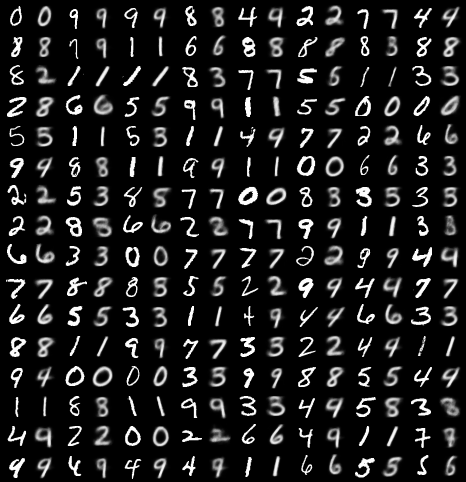 0 0 9 9 9 9 8 8 4 9 2 2 7 7 4 4
8 8 7 9 1 1 6 6 8 8 8 8 8 3 8 8
8 2 1 1 1 1 8 3 7 7 5 5 1 1 3 3
2 8 6 6 5 5 9 9 1 1 5 5 0 0 0 0
5 5 1 1 5 3 1 1 4 9 7 7 2 2 6 6
9 4 8 8 1 1 9 9 1 1 0 0 6 6 3 3
2 2 5 3 8 5 7 7 0 0 8 3 3 5 3 5
2 2 8 8 6 6 2 8 7 7 9 9 1 1 3 3
6 6 3 3 0 0 7 7 7 7 2 2 9 9 4 9
7 7 8 8 8 8 5 5 2 2 9 9 4 4 7 7
6 6 5 5 3 3 1 1 4 9 4 4 6 6 3 3
8 8 1 1 9 9 7 7 3 3 2 2 4 4 1 1
9 4 0 0 0 0 3 3 9 9 8 8 5 5 4 4
1 1 8 8 1 1 9 9 3 3 4 4 5 8 3 8
4 9 2 2 0 0 2 2 6 6 4 9 1 1 7 7
9 9 4 9 4 9 4 9 1 1 6 6 5 5 5 6